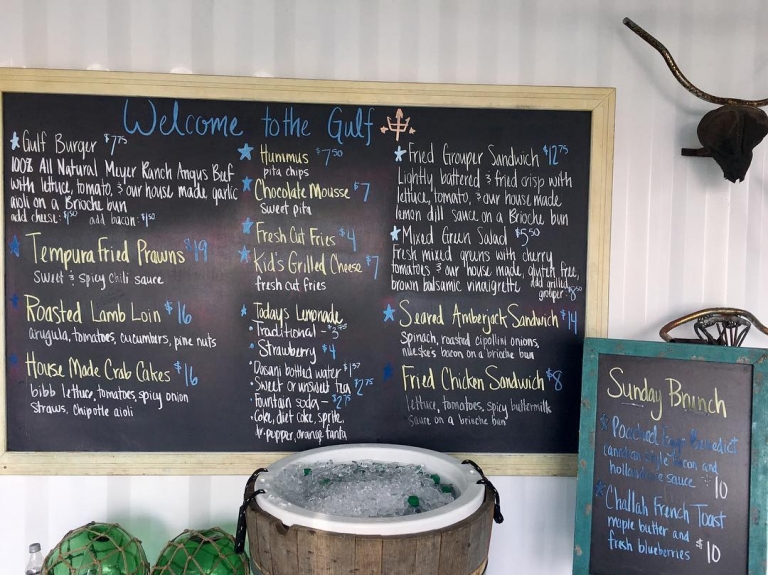 Welcome to the Gulf
Gulf Burger $7.75
100% All Natural Meyer Ranch Angus Beef
with lettuce, tomato, & our house made garlic
aioli on a Brioche bun
add cheese: $1.50 add bacon: $1.50
Tempura Fried Prawns $19
Sweet & spicy chili sauce
Roasted Lamb Loin $16
arugula, tomatoes, cucumbers, pine nuts
House Made Crab Cakes $16
bibb lettuce, tomatoes, spicy onion
straws, chipotle aioli
Hummus $7.50
pita chips
Chocolate Mousse $7
Sweet pita
Fresh Cut Fries $4
Kid's Grilled Cheese $7
fresh cut fries
Today's Lemonade
Traditional -
Strawberry $4
Dasani bottled water
Sweet or unsweet tea $2.75
Fountain soda - $2.75
Coke, diet coke, sprite,
dr. pepper, orange fanta
Fried Grouper Sandwich $12.75
Lightly battered & fried crisp with
lettuce, tomato, & our house made
lemon dill sauce on a Brioche bun
Mixed Green Salad $5.50
Fresh mixed greens with cherry
tomatoes & our house made, gluten free,
brown balsamic vinaigrette add grilled
grouper
Seared Amberjack Sandwich $14
Spinach, roasted cipollini onions,
nueske's bacon on a brioche bun
Fried Chicken Sandwich $8
lettuce, tomatoes, spicy buttermilk
sauce on a brioche bun
Sunday Brunch
Poached Egg Benedict
canadian style bacon and
hollandaise sauce $10
Challah French Toast
maple butter and
fresh blueberries $10